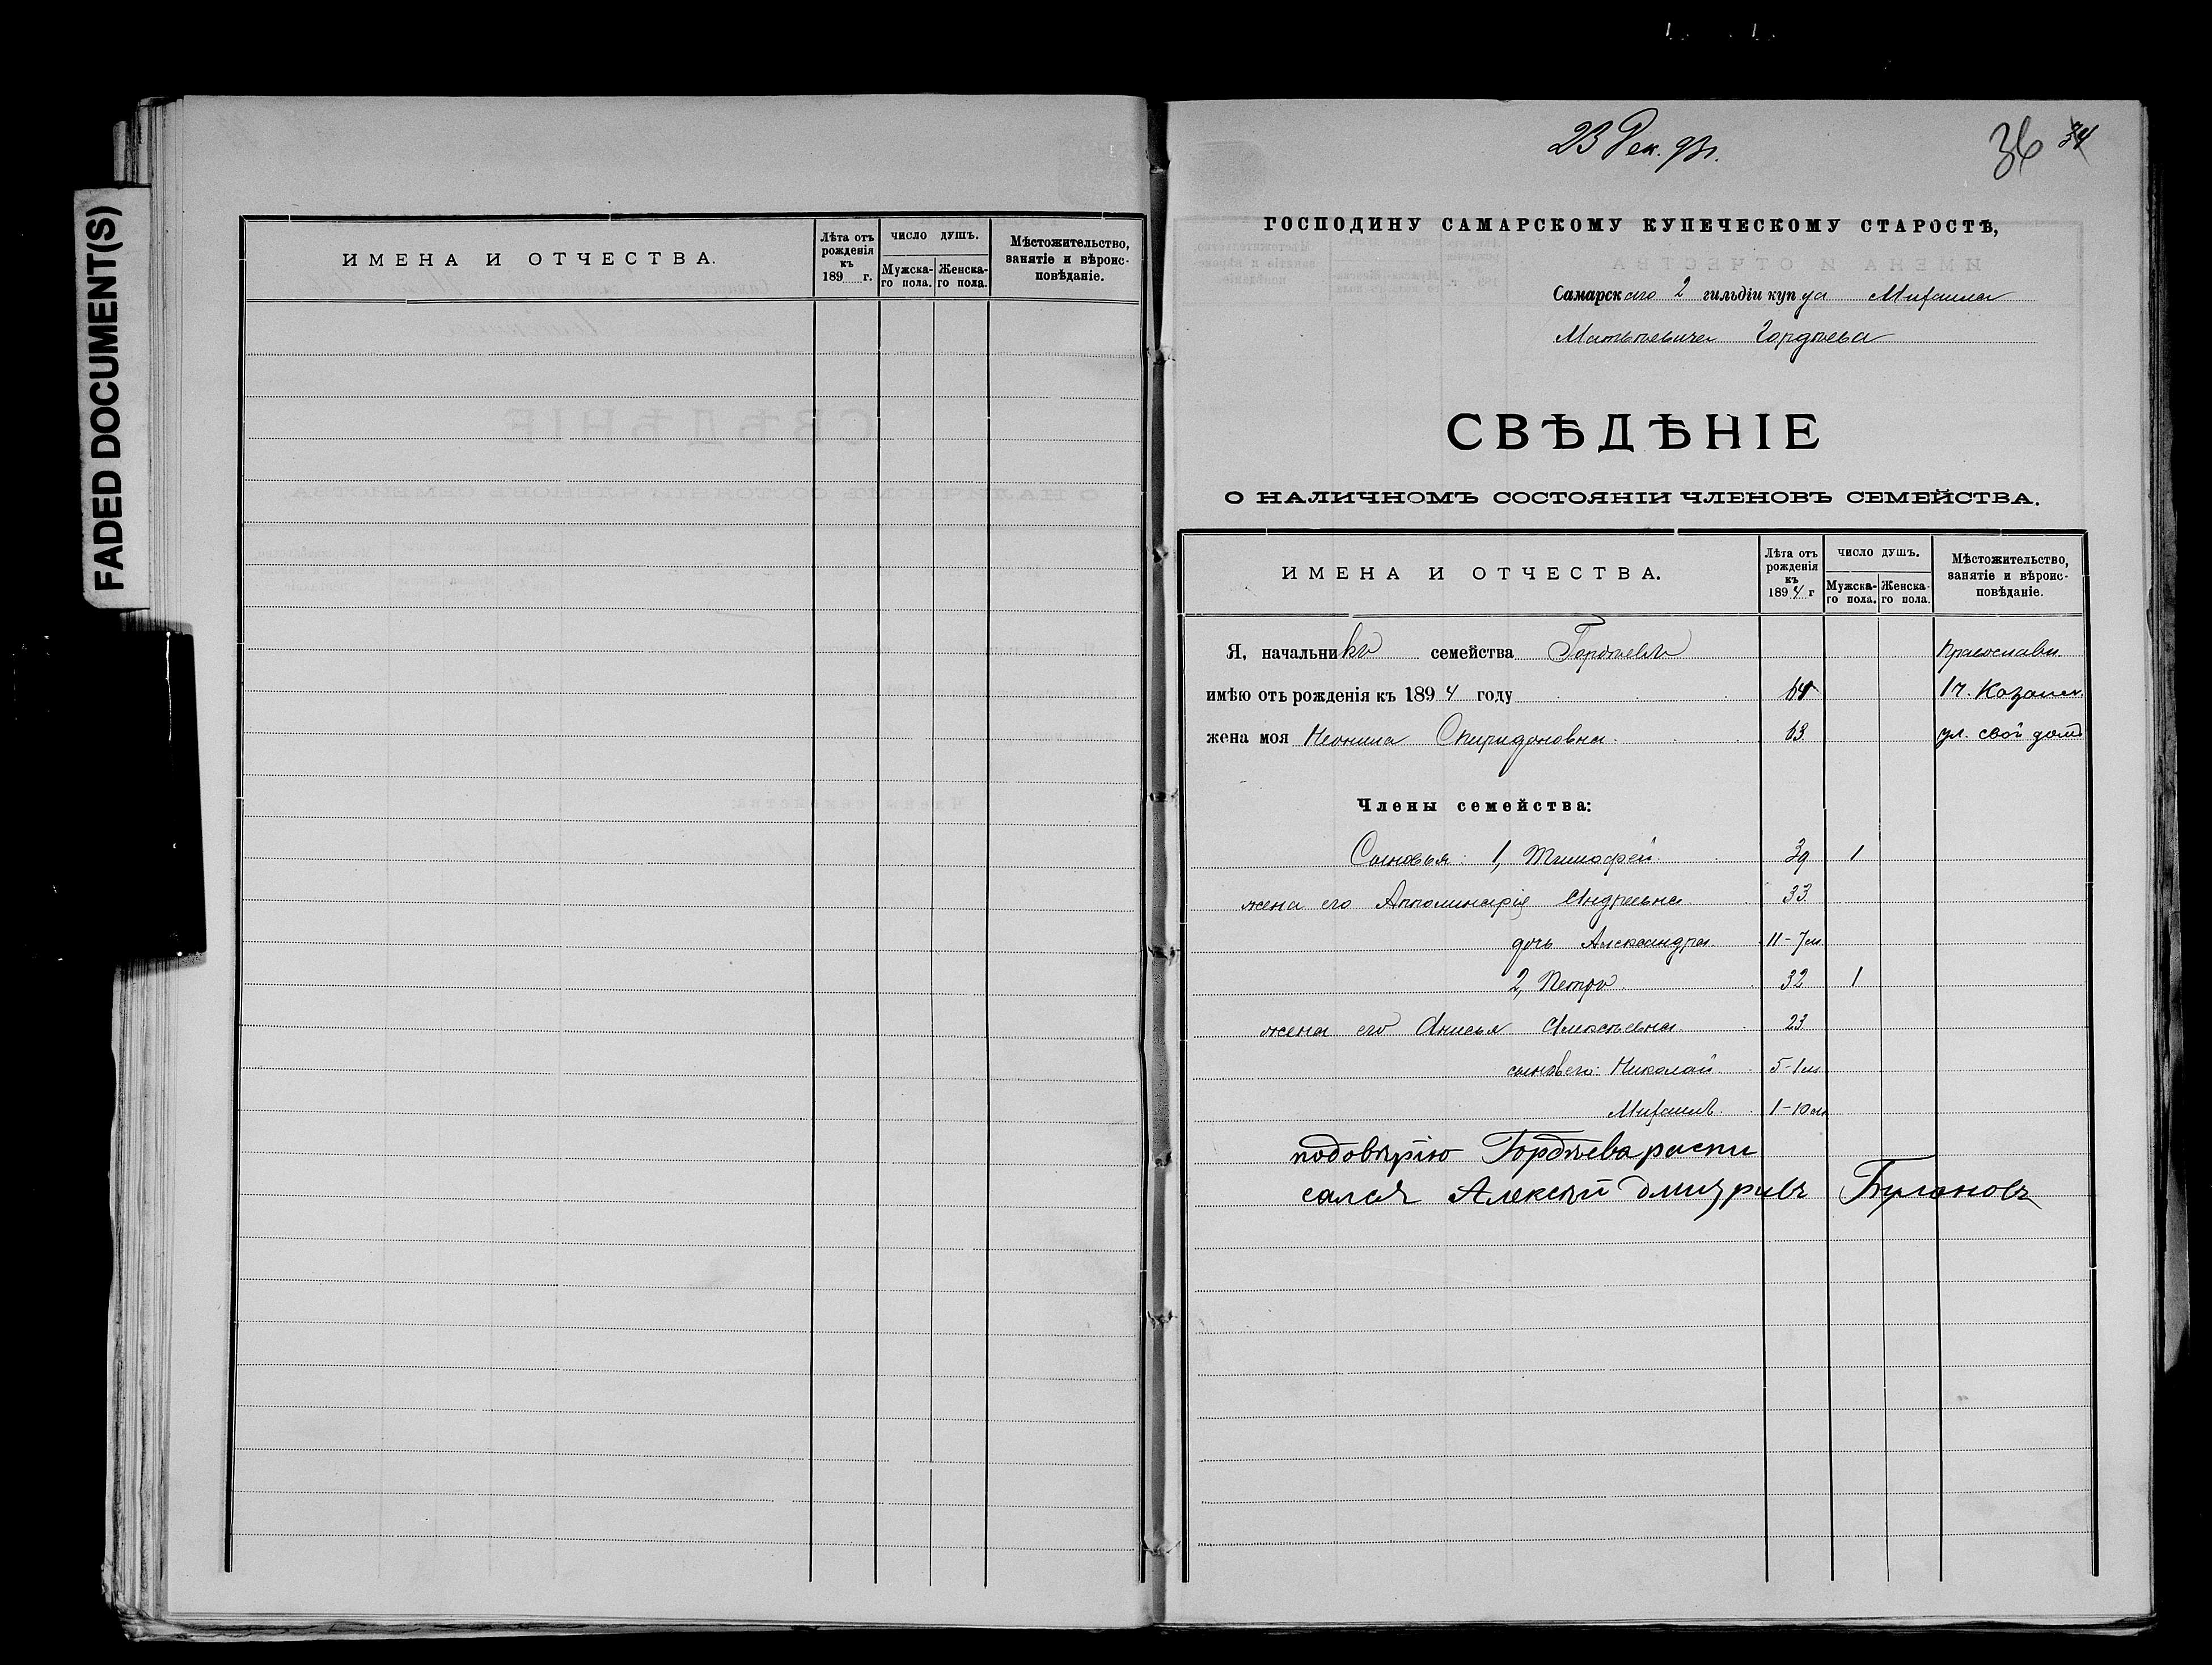 FADED DOCUMENT(S)
ИМЕНА И ОТЧЕСТВА.
Лѣта отъ рожденія къ 189 г.
ЧИСЛО ДУШЪ.
Мужска-го пола.
Женска-го пола.
Мѣстожительство, занятіе и вѣроис-повѣданіе.
23 Дек. 93 г.
36 34
ГОСПОДИНУ САМАРСКОМУ КУПЕЧЕСКОМУ СТАРОСТѢ,
Самарскаго 2 гильдіи купца Михаила
Матвѣевича Гордѣева
СВѢДѢНІЕ
О НАЛИЧНОМЪ СОСТОЯНІИ ЧЛЕНОВЪ СЕМЕЙСТВА.
ИМЕНА И ОТЧЕСТВА.
Лѣта отъ рожденія къ 1894 г
ЧИСЛО ДУШЪ.
Мужска-го пола.
Женска-го пола.
Мѣстожительство, занятіе и вѣроис-повѣданіе.
Я, начальникъ семейства Гордѣевъ Православн.
имѣю отъ рожденія къ 1894 году 64 1 ч. Казанск.
жена моя Неонила Спиридоновна 63 ул. свой домъ
Члены семейства:
Сыновья: 1, Тимофей 39 1
жена его Апполинарія Андреевна 33
дочь Александра 11-7 м.
2, Петръ 32 1
жена его Анисья Алексѣевна 23
сыновья его: Николай 5-1 м
Михаилъ 1-10 м
подовѣрію Гордѣева распи
сался Алексѣй дмитривъ